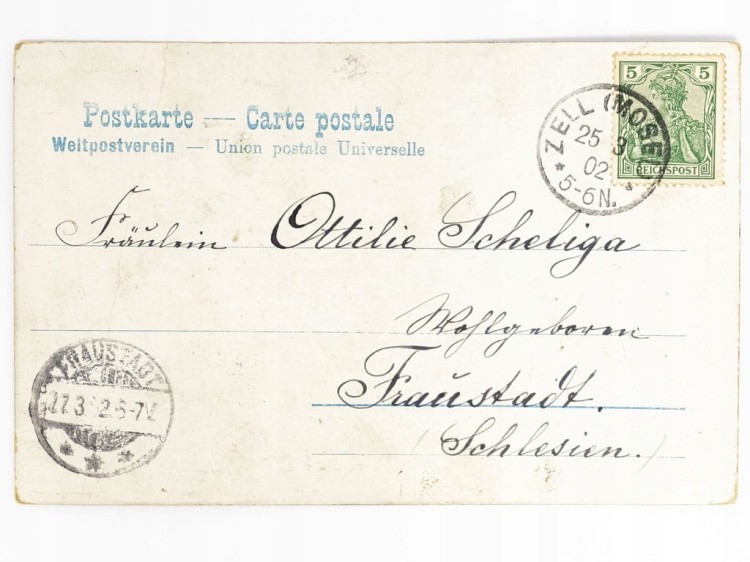 Postkarte — Carte postale
Weltpostverein — Union postale Universelle
5 5
REICHSPOST
ZELL (MOSEL)
25 3
02
5-6N.
Fräulein Ottilie Scheliga
Wohlgeboren
Fraustadt.
(Schlesien.)
FRAUSTADT
27.3 02.6-7V